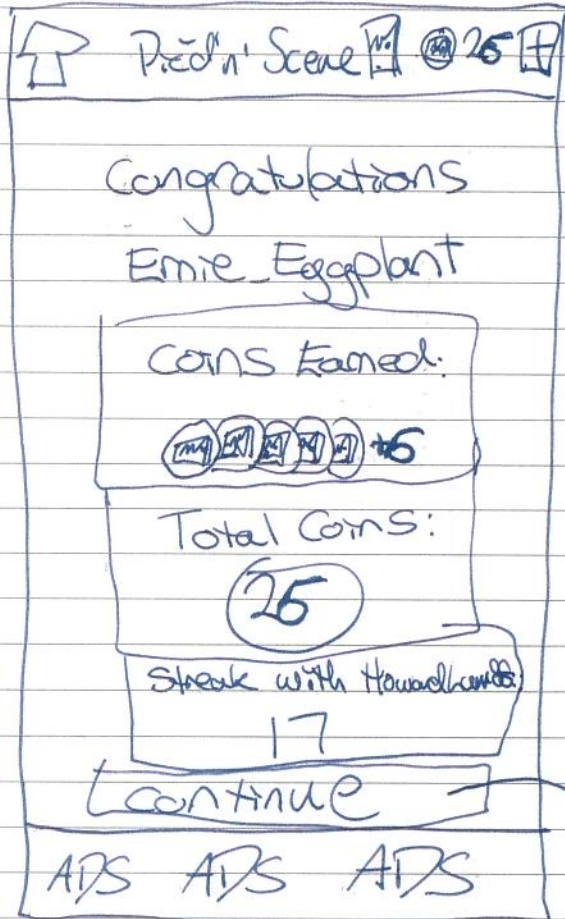 Pic'd'n' Scene 25 +
Congratulations
Ernie_Eggplant
Coins Earned:
+5
Total Coins:
25
Streak with
17
continue
ADS ADS ADS